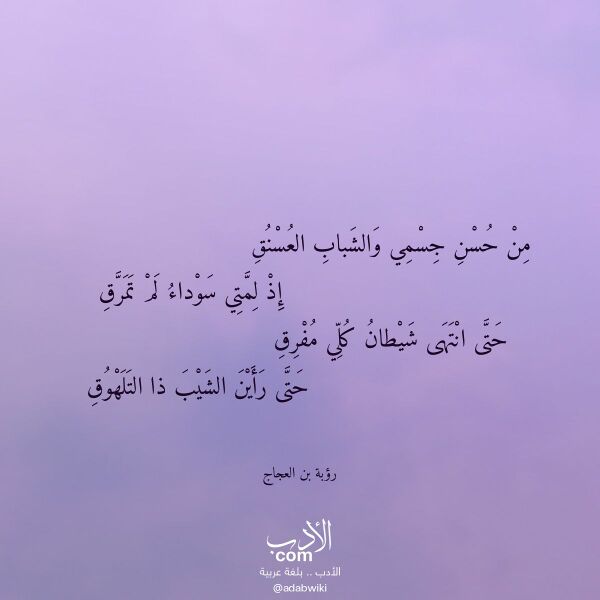 مِنْ حُسْنِ جِسْمِي وَالشَبابِ العُسْنُقِ
إِذْ لِمَّتِي سَوْداءُ لَمْ تَمَرَّقِ
حَتَّى انْتَهَى شَيْطانُ كُلِّي مُفْرِقِ
حَتَّى رَأَيْنَ الشَيْبَ ذا التَلَهْوُقِ
رؤبة بن العجاج
الأدب
.com
الأدب .. بلغة عربية
@adabwiki